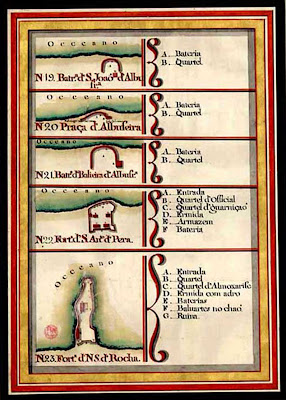 Occeano
N19. Batr.ª d'S. Joaõ.d Albu
frª.
A... Bateria
B... Quartel
Occeano
N20 Praça d'Albufeira
A... Bateria
B... Quartel
Occeano
N21. Bat.ª d'Baliera d'Albufrª
A... Bateria
B... Quartel
Occeano
N22. Fort.ª d'S. Ant.º d'Pera.
A... Entrada
B... Quartel d'Official
C... Quartel d'Guarniçaõ
D... Ermida
E... Armazem
F Bateria
Occeano
N23. Fort.ª d'N S d'Rocha.
A... Entrada
B... Quartel
C... Quartel d'Almoxarife
D... Ermida com adro
E... Baterias
F... Baluartes no chaõ
G... Ruina.